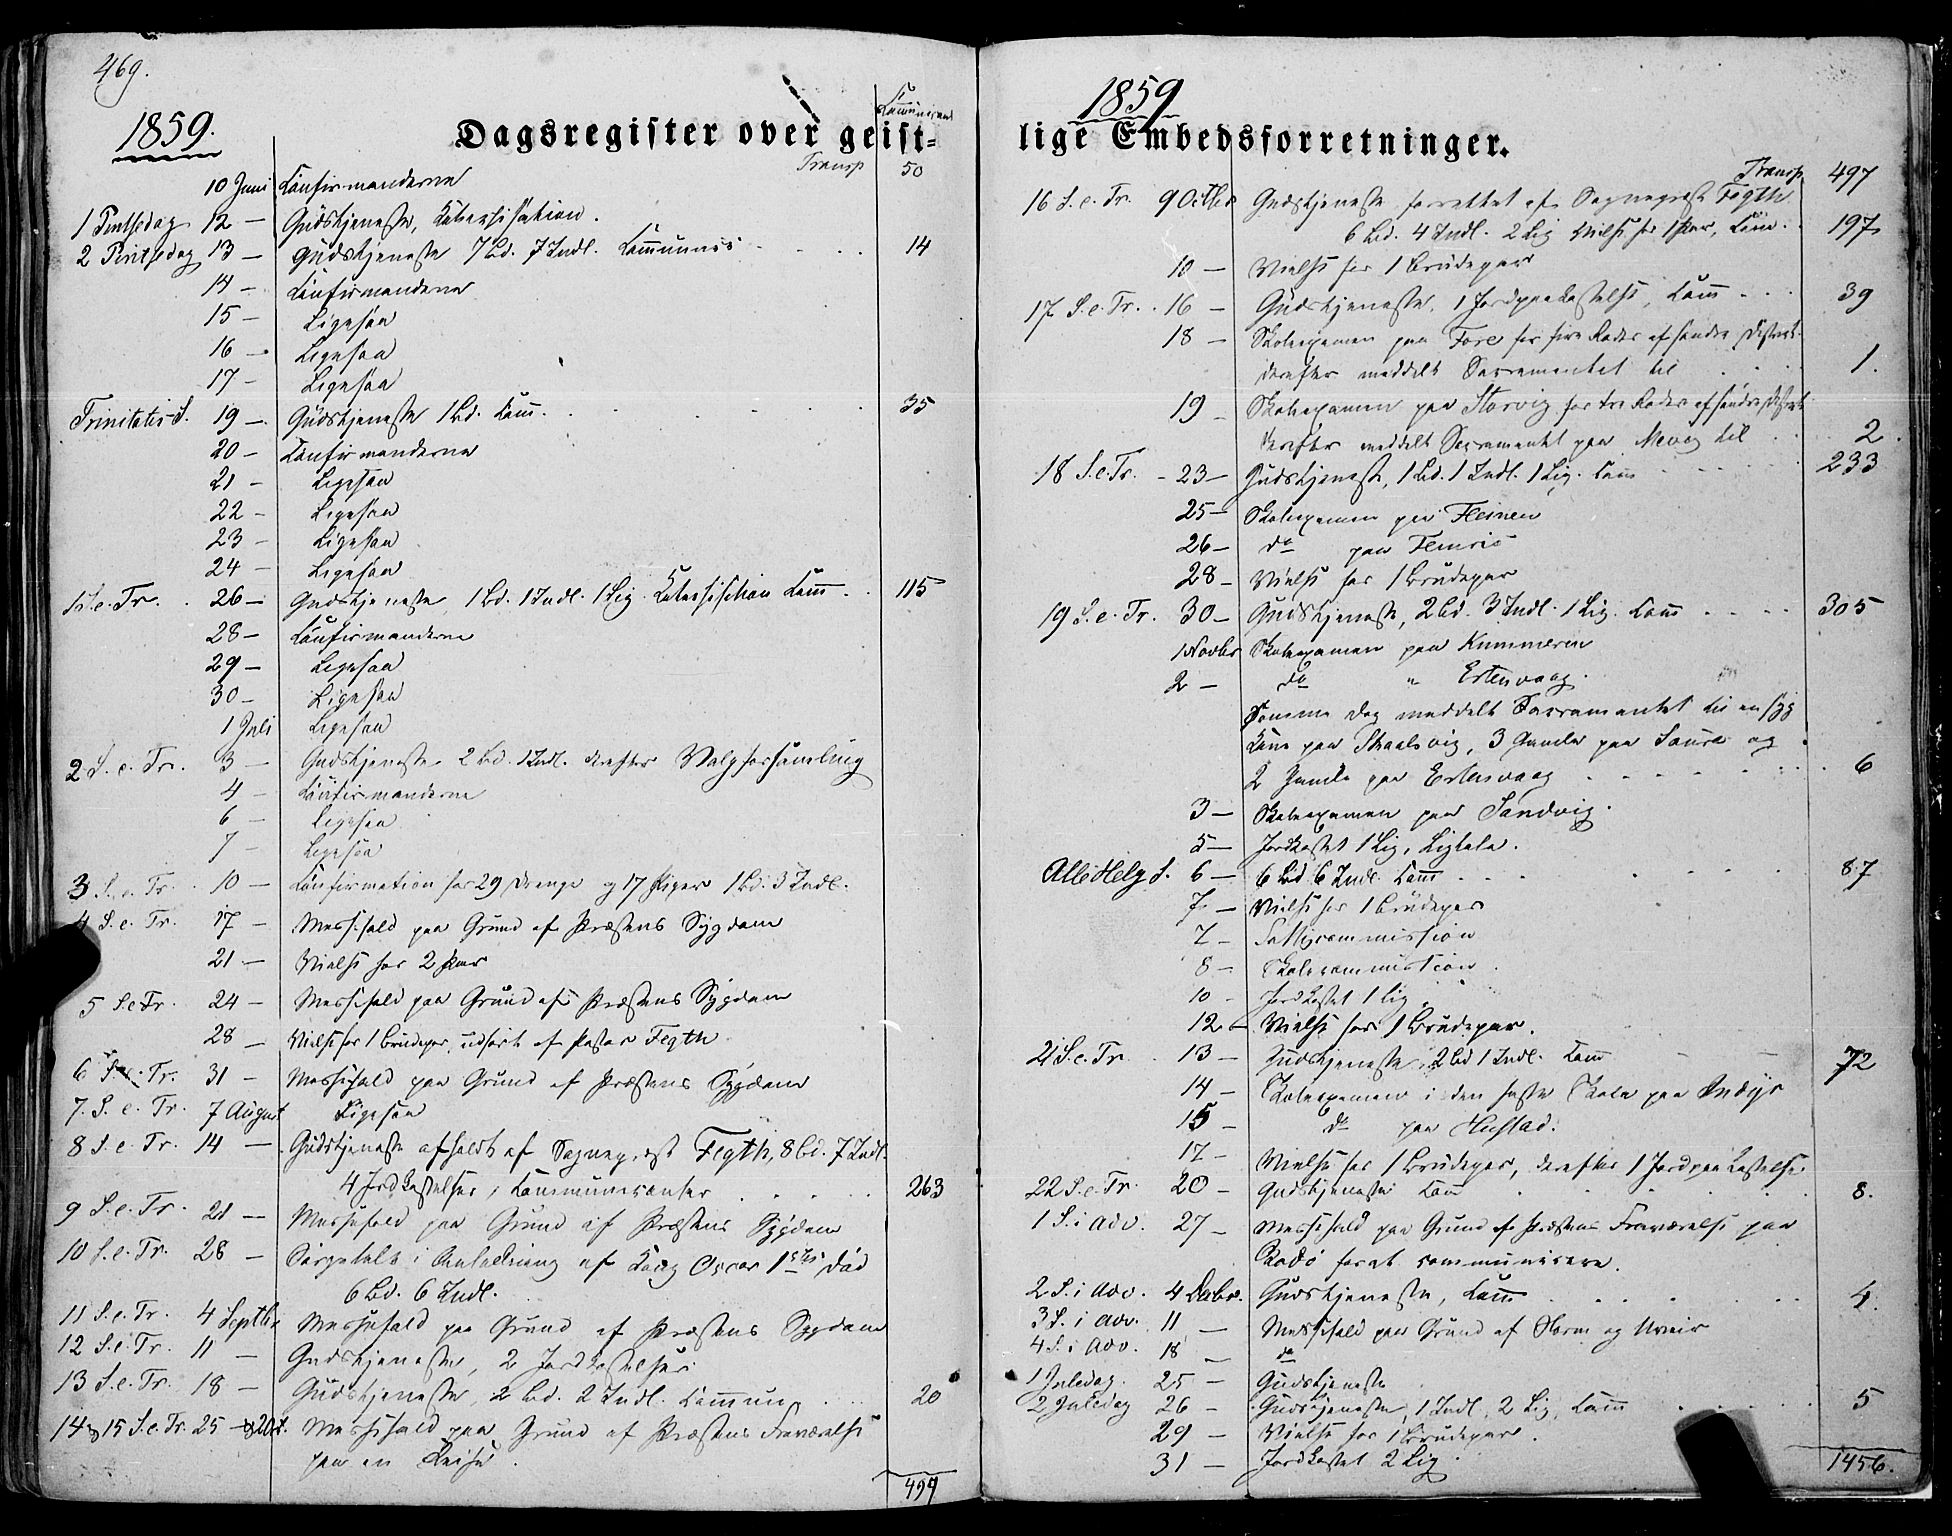 469.
1859.
Dagsregister over geist-
Communicant
Transp 50
10 Juni Confirmanderne
1 Pintsedag 12 — Gudstjeneste, Katechisation.
2 Pintsedag 13 — Gudstjeneste 7 Bd. 7 Indl. Communic: . . . 14
14 — Confirmanderne
15 — Ligesaa
16 — Ligesaa
17 — Ligesaa
Trinitatis S. 19 — Gudstjeneste 1 Bd. Com. . . . 35
20 — Confirmanderne
21 — Ligesaa
22 — Ligesaa
23 — Ligesaa
24 — Ligesaa
1 S. e. Tr. . 26 — Gudstjeneste, 1 Bd. 1 Indl. 1 Lig. Katechisation Com . . 115
28 — Confirmanderne
29 — Ligesaa
30 — Ligesaa
1 Juli Ligesaa
2 S. e. Tr. 3 — Gudstjeneste 2 Bd. 1 Indl. derefter Valgforsamling
4 — Confirmanderne
6 — Ligesaa
7 — Ligesaa
3 S. e. Tr. . 10 — Confirmation for 29 Drenge og 17 Piger 1 Bd. 3 Indl.
4 S. e. Tr. 17 — Messefald paa Grund af Præstens Sygdom
21 — Vielse for 2 Par
5 S. e. Tr. 24 — Messefald paa Grund af Præstens Sygdom
28 — Vielse for 1 Brudepar, udført af Pastor Fegth.
6 S. e. Tr. 31 — Messefald paa Grund af Præstens Sygdom
7. S. e. Tr. 7 August Ligesaa
8 S. e. Tr. 14 — Gudstjeneste afholdt af Sognepræst Fegth, 8 Bd. 7 Indl.
4 Jordkastelser, Communicanter . . . . 263
9 S. e. Tr. 21 — Messefald paa Grund af Præstens Sygdom
10 S. e. Tr. 28 — Sørgetale i Anledning af Kong Oscar 1stes Død
6 Bd. 6 Indl.
11 S. e. Tr. 4 Septbr Messefald paa Grund af Præstens Sygdom
12 S. e. Tr. 11 — Gudstjeneste, 2 Jordkastelser.
13 S. e. Tr. 18 — Gudstjeneste, 2 Bd. 2 Indl. Commun . . . 20
14 & 15 S. e. Tr. 25 — Messefald paa Grund af Præstens Fraværelse
paa en Reise.
497
1859
lige Embedsforretninger.
Transp 497
16 S. e. Tr. 9 Octbr Gudstjeneste forrettet af Sognepræst Fegth
6 Bd. 4 Indl. 2 Lig Vielse for 1 Par, Com. . 197
10 — Vielse for 1 Brudepar
17 S. e. Tr. . 16 — Gudstjeneste, 1 Jordpaakastelse, Com . . . 39
18 — Skoleexamen paa Fore for fire Roder af søndre District
derefter meddelt Sacramentet til . . . . 1.
19 — Skoleexamen paa Storvig for tre Roder af søndre District
derefter meddelt Sacramentet paa Mevig til . . . 2.
18 S. e. Tr. - 23 — Gudstjeneste, 1 Bd. 1 Indl. 1 Lig. Com . . . . 233
25 — Skoleexamen paa Fleinen
26 — do paa Femris
28 — Vielse for 1 Brudepar
19 S. e. Tr. 30 — Gudstjeneste, 2 Bd. 3 Indl. 1 Lig. Com . . . . 305
1 Novbr Skoleexamen paa Kummeren
2 — do " Ertenvaag.
Samme Dag meddelt Sacramentet til en syg
Kone paa Skaalsvig, 3 Gamle paa Saura og
2 Gamle paa Ertensvaag . . . . . . 6
3 — Skoleexamen paa Sandvig.
5 — Jordkastet 1 Lig, Ligtale.
Alle Helg. S. 6 — 6 Bd 6 Indl. Com . . . . . . 87
7 — Vielse for 1 Brudepar
7 — Fattigcommission
8 — Skolecommission
10 - Jordkastet 1 Lig
12 — Vielse for 1 Brudepar.
21 S. e. Tr. 13 — Gudstjeneste, 2 Bd 1 Indl. Com — — 72
14 — Skoleexamen i den faste Skole paa Inddyr
15 — do paa Hustad.
17 — Vielse for 1 Brudepar, derefter 1 Jordpaakastelse
22 S. e. Tr. 20 — Gudstjeneste Com . . . . . . 8.
1 S. i Adv. 27 — Messefald paa Grund af Præstens Fraværelse paa
Bodø for at communicere.
2 S. i Adv. 4 Decbr. Gudstjeneste, Com . . . . . . 4.
3 S. i Adv. 11 — Messefald paa Grund af Storm og Uveir
4 S. i Adv. 18 — do
1 Juledag. 25 — Gudstjeneste
2 Juledag 26 — Gudstjeneste, 1 Indl, 2 Lig, Com . . . . . 5
29 — Vielse for 1 Brudepar.
31 — Jordkastet 2 Lig.
1456.